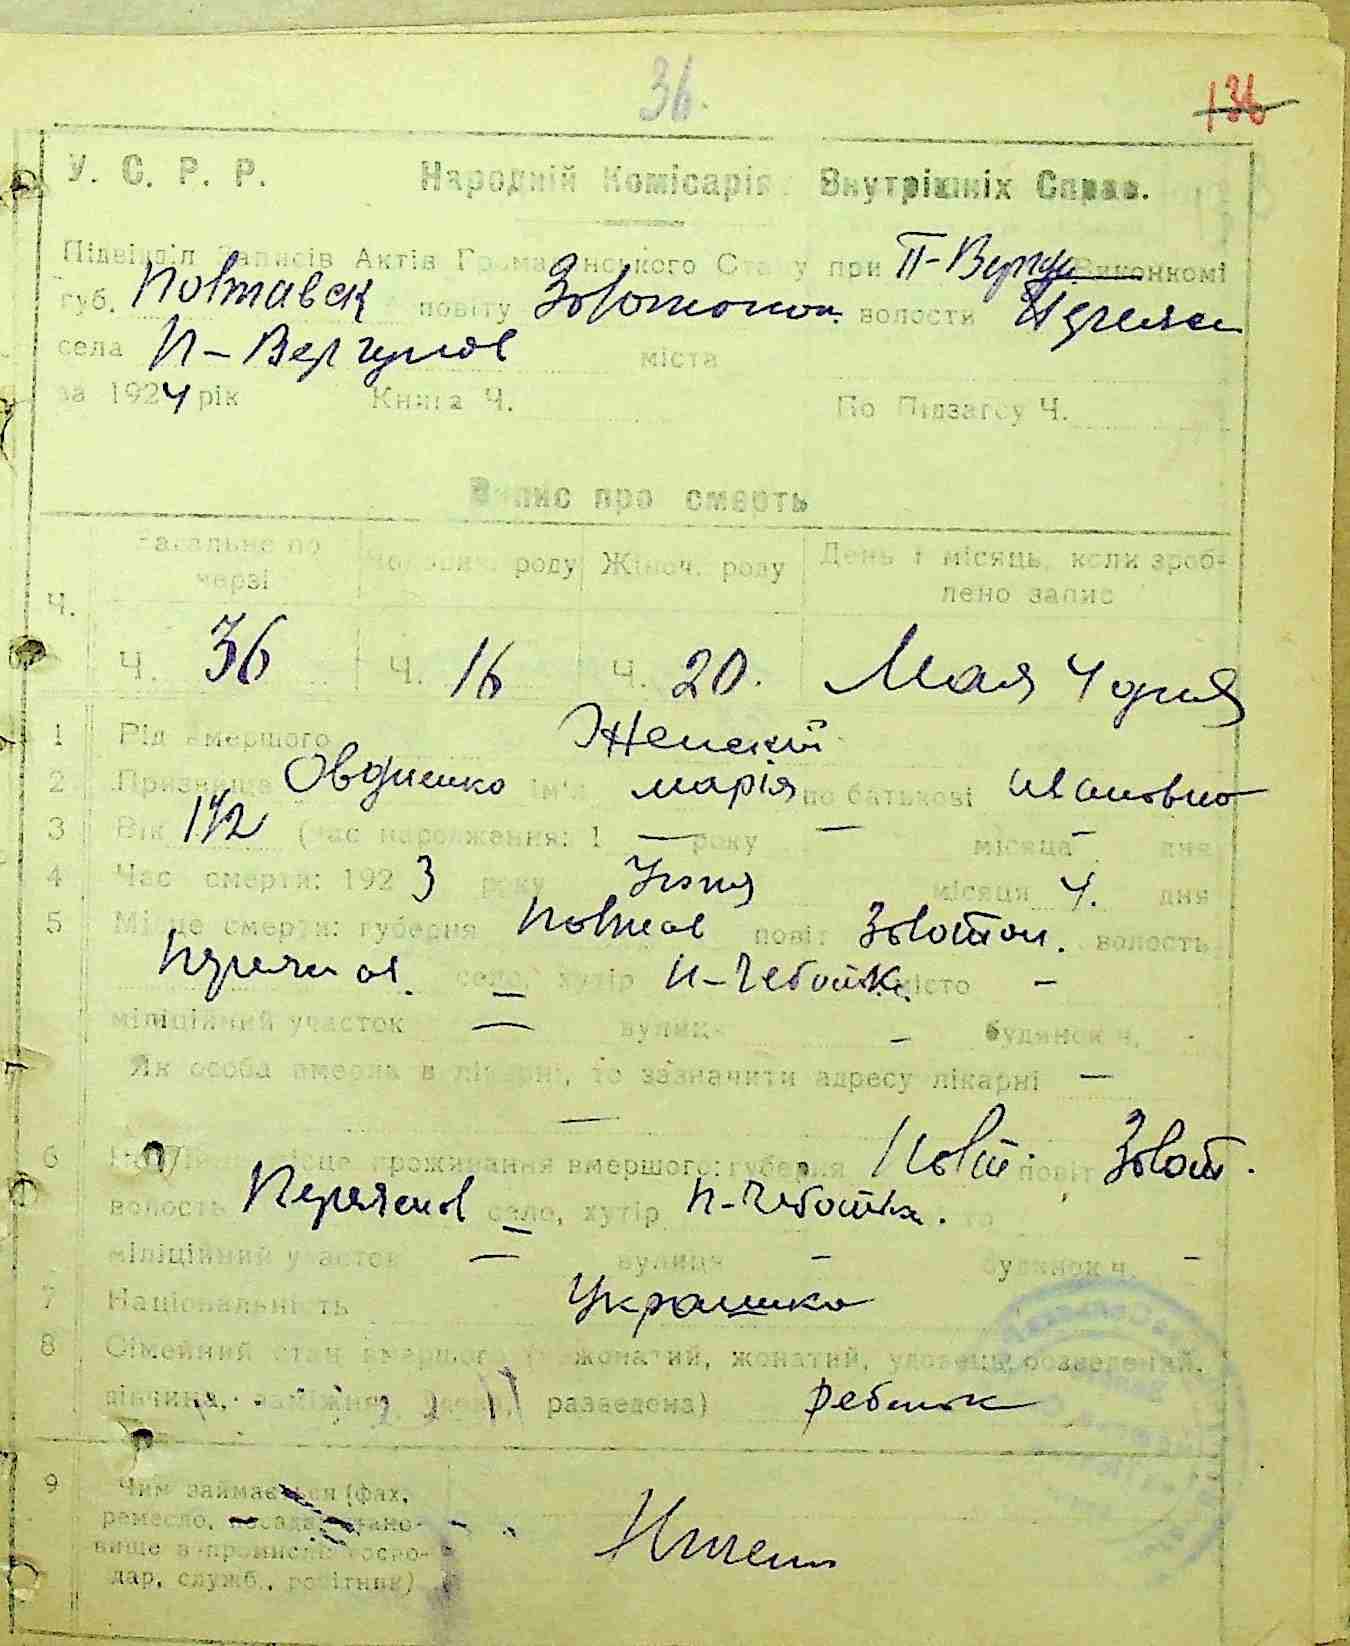 36.
136
У. С. Р. Р. Народній Комісарія Внутрішніх Справ.
Підвідділ Записів Актів Громадянського Стану при П-Вергун Виконкомі
губ. Полтавск повіту Золотонош. волости
села П-Вергунов міста
за 1924 рік Книга Ч. По Підзагсу Ч.
Випис про смерть
Ч. Загальне по черзі Чоловіч. роду Жіноч. роду День і місяць, коли зроблено запис
Ч. 36 Ч. 16 Ч. 20. Мая 4 дня
1 Рід вмершого Женский
2 Призвище Овдиенко Ім'я марія по батькові Ивановна
3 Вік 1 1/2 (час народження: 1 — року — місяця - дня
4 Час смерти: 1923 року місяця 4. дня
5 Місце смерти: губерня Полтав повіт Золотон. волость
село, хутір П-Чебоітк. місто -
міліційний участок — вулиця - будинок ч. -
Як особа вмерла в лікарні, то зазначити адресу лікарні —
—
6 Постійне місце проживання вмершого: губерня Полт. повіт Золот.
волость село, хутір П-Чебоітк.
міліційний участок — вулиця - будинок ч. -
7 Національність Украинка
8 Сімейний стан вмершого (нежонатий, жонатий, удовець, розведений,
дівчина, заміжня, вдова, разведена) ребенок
9 Чим займається (фах,
ремесло, посада, стано-
вище в промислі: госпо-
дар, служб., робітник)